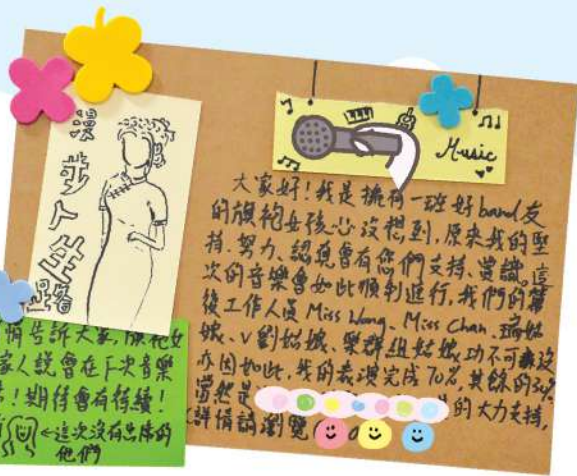 漫步人生路
Music
大家好！我是擁有一班好band友
的旗袍女孩心沒想到，原來我的堅
持、努力、認真會有您們支持、賞識。這
次的音樂會如此順利進行，我們的幕
後工作人員 Miss Wong、Miss Chan、瑜姑
娘、V劉姑娘、樂群組姑娘功不可沒
亦因如此，我的表演完成70%，其餘的30%
當然是 的大力支持，
詳情請瀏覽
情告訴大家，旗袍女
家人說會在下次音樂
！期待會有待續！
←這次沒有出席的
他們